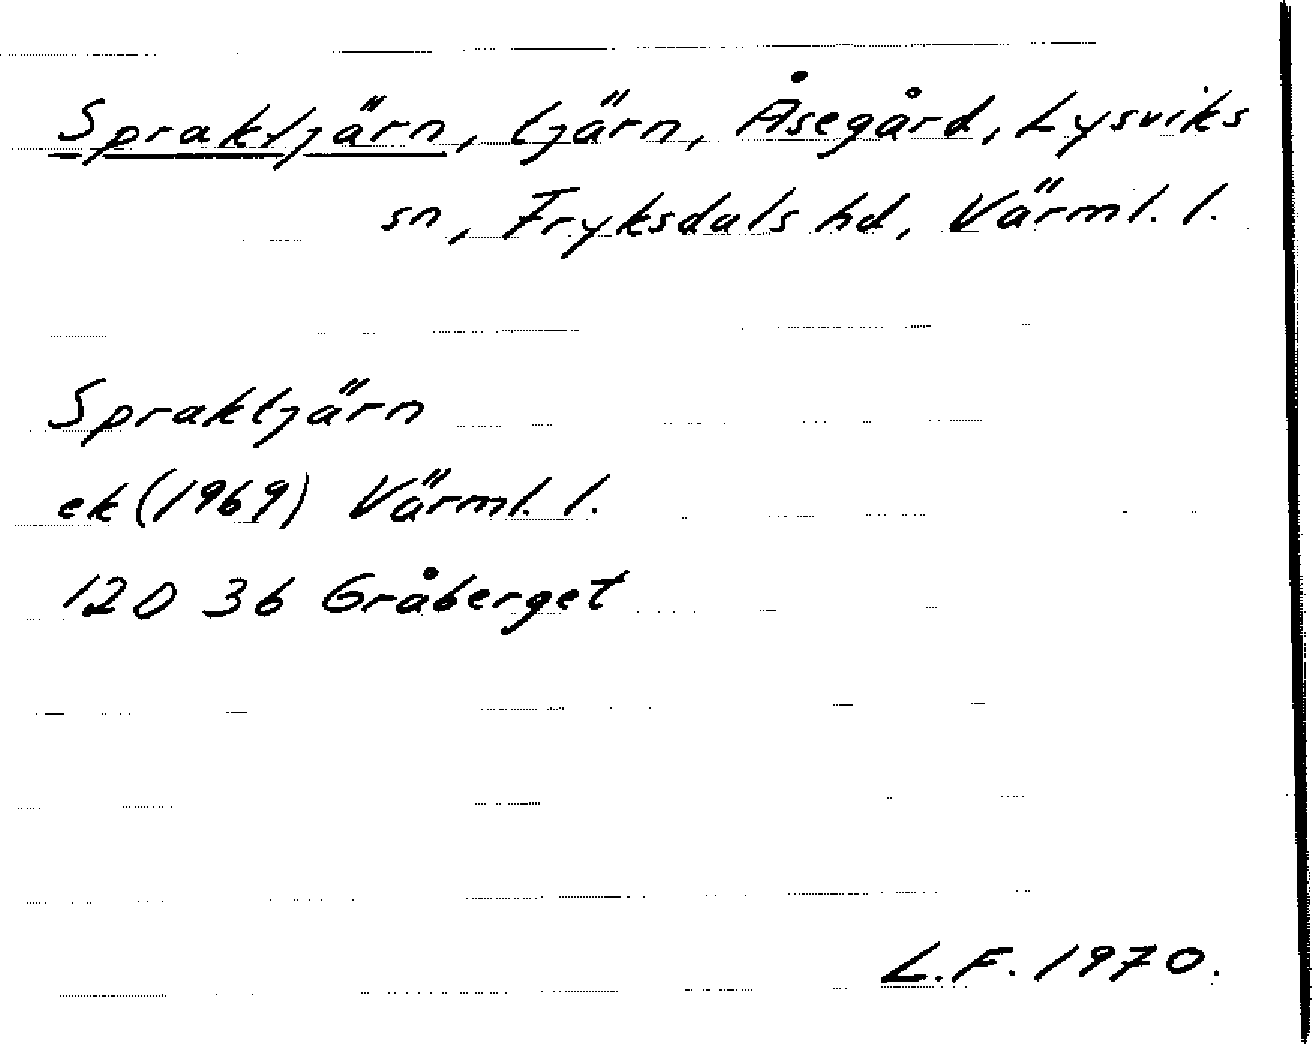 Spraktjärn, tjärn, Åsegård, Lysviks
sn, Fryksdals hd, Värml. l.
Spraktjärn
ek (1969) Värml. l.
12D 3b Gråberget
L.F. 1970.